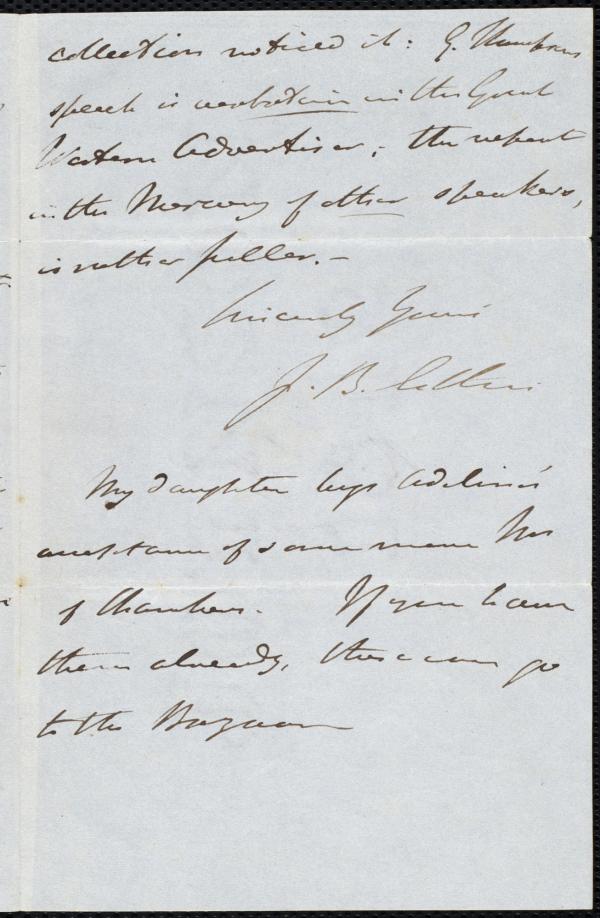 collection noticed it: G. Thompson's
speech is verbatim in the Great
Western Advertiser; the report
in the Mercury of other speakers,
is rather fuller.—
Sincerely Yours
J. B. Estlin
My daughter begs Adeline's
acceptance of some more Nos
of Chambers. If you have
them already, these can go
to the Bazaar